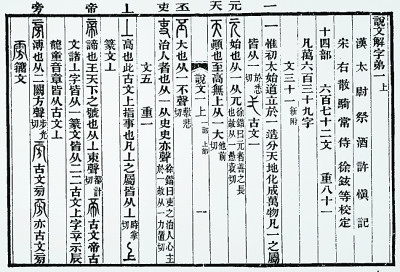 說文解字弟一 上
漢太尉祭酒許慎記
宋右散騎常侍徐鉉等校定
十四部 六百七十二文 重八十一
凡萬六百三十九字
文三十一新附
一 惟初太始道立於一造分天地化成萬物凡一之屬
皆从一於悉切 古文一
元 始也从一从兀徐鍇曰元者善之長也故从一愚袁切
天 顚也至高無上从一大他前切
說文一上 一部 上部 一
丕 大也从一不聲敷悲切
吏 治人者也从一从史史亦聲徐鍇曰吏之治人心主於一故从一力置切
文五 重一
高也此古文上指事也凡丄之屬皆从丄時掌切
篆文丄
帝 諦也王天下之號也从丄朿聲都計切 古文帝古
文諸丄字皆从一篆文皆从二二古文上字䇂示辰
龍童音章皆从古文丄
旁 溥也从二闕方聲步光切 古文㫄 亦古文㫄
籒文